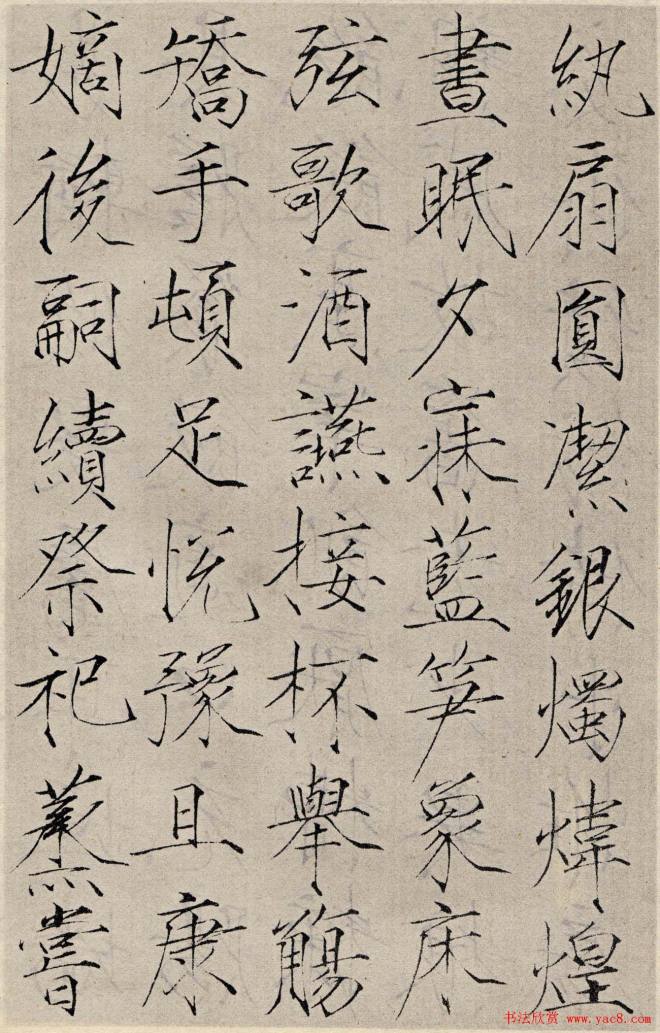 紈扇圓潔銀燭煒煌
晝眠夕寐藍笋象床
弦歌酒讌接杯舉觴
矯手頓足悅豫且康
嫡後嗣續祭祀蒸嘗
书法欣赏 www.yac8.com